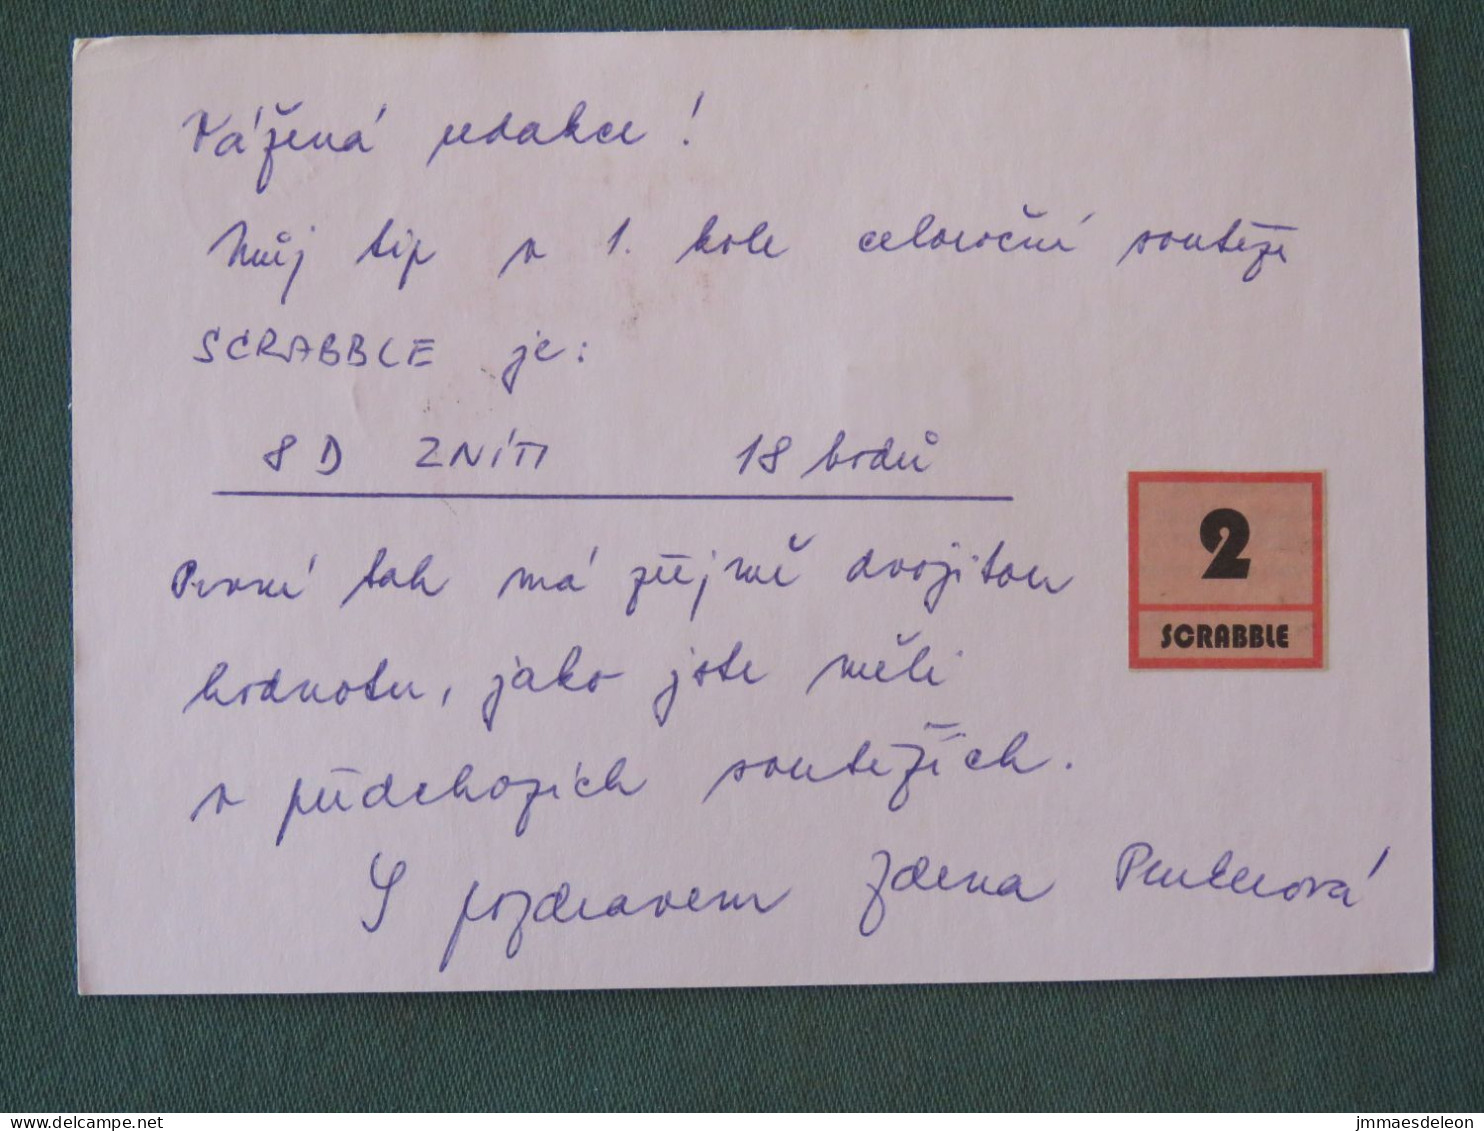 Vážená redakce!
Můj tip v 1. kole celoroční soutěže
SCRABBLE je:
8 D ZNÍTI 18 bodů
První tah má zřejmě dvojitou
hodnotu, jako jste měli
v předchozích soutěžích.
S pozdravem Zdena
2
SCRABBLE
delcampe.net
jmmaesdeleon